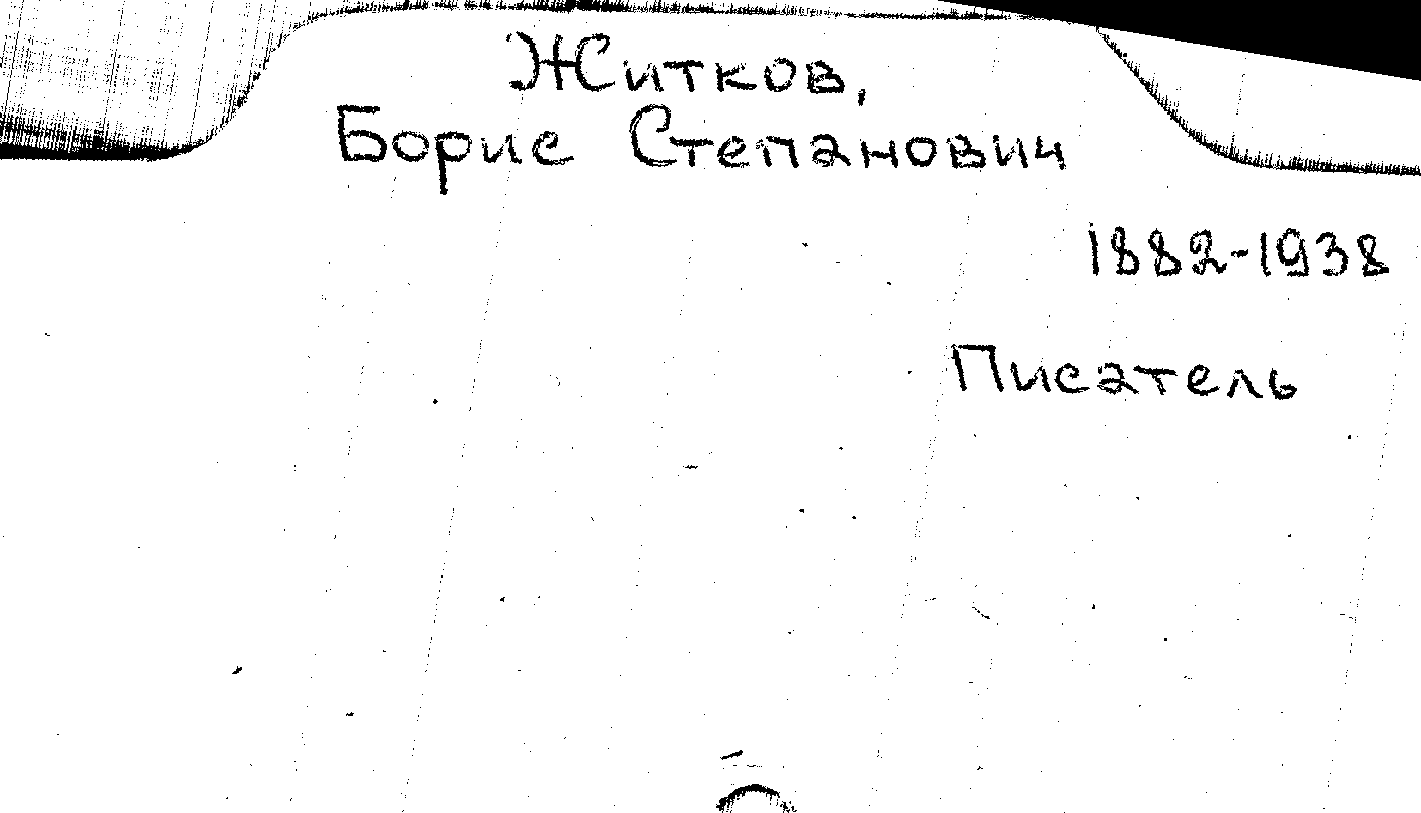 Житков,
Борис Степанович
1882-1938
Писатель